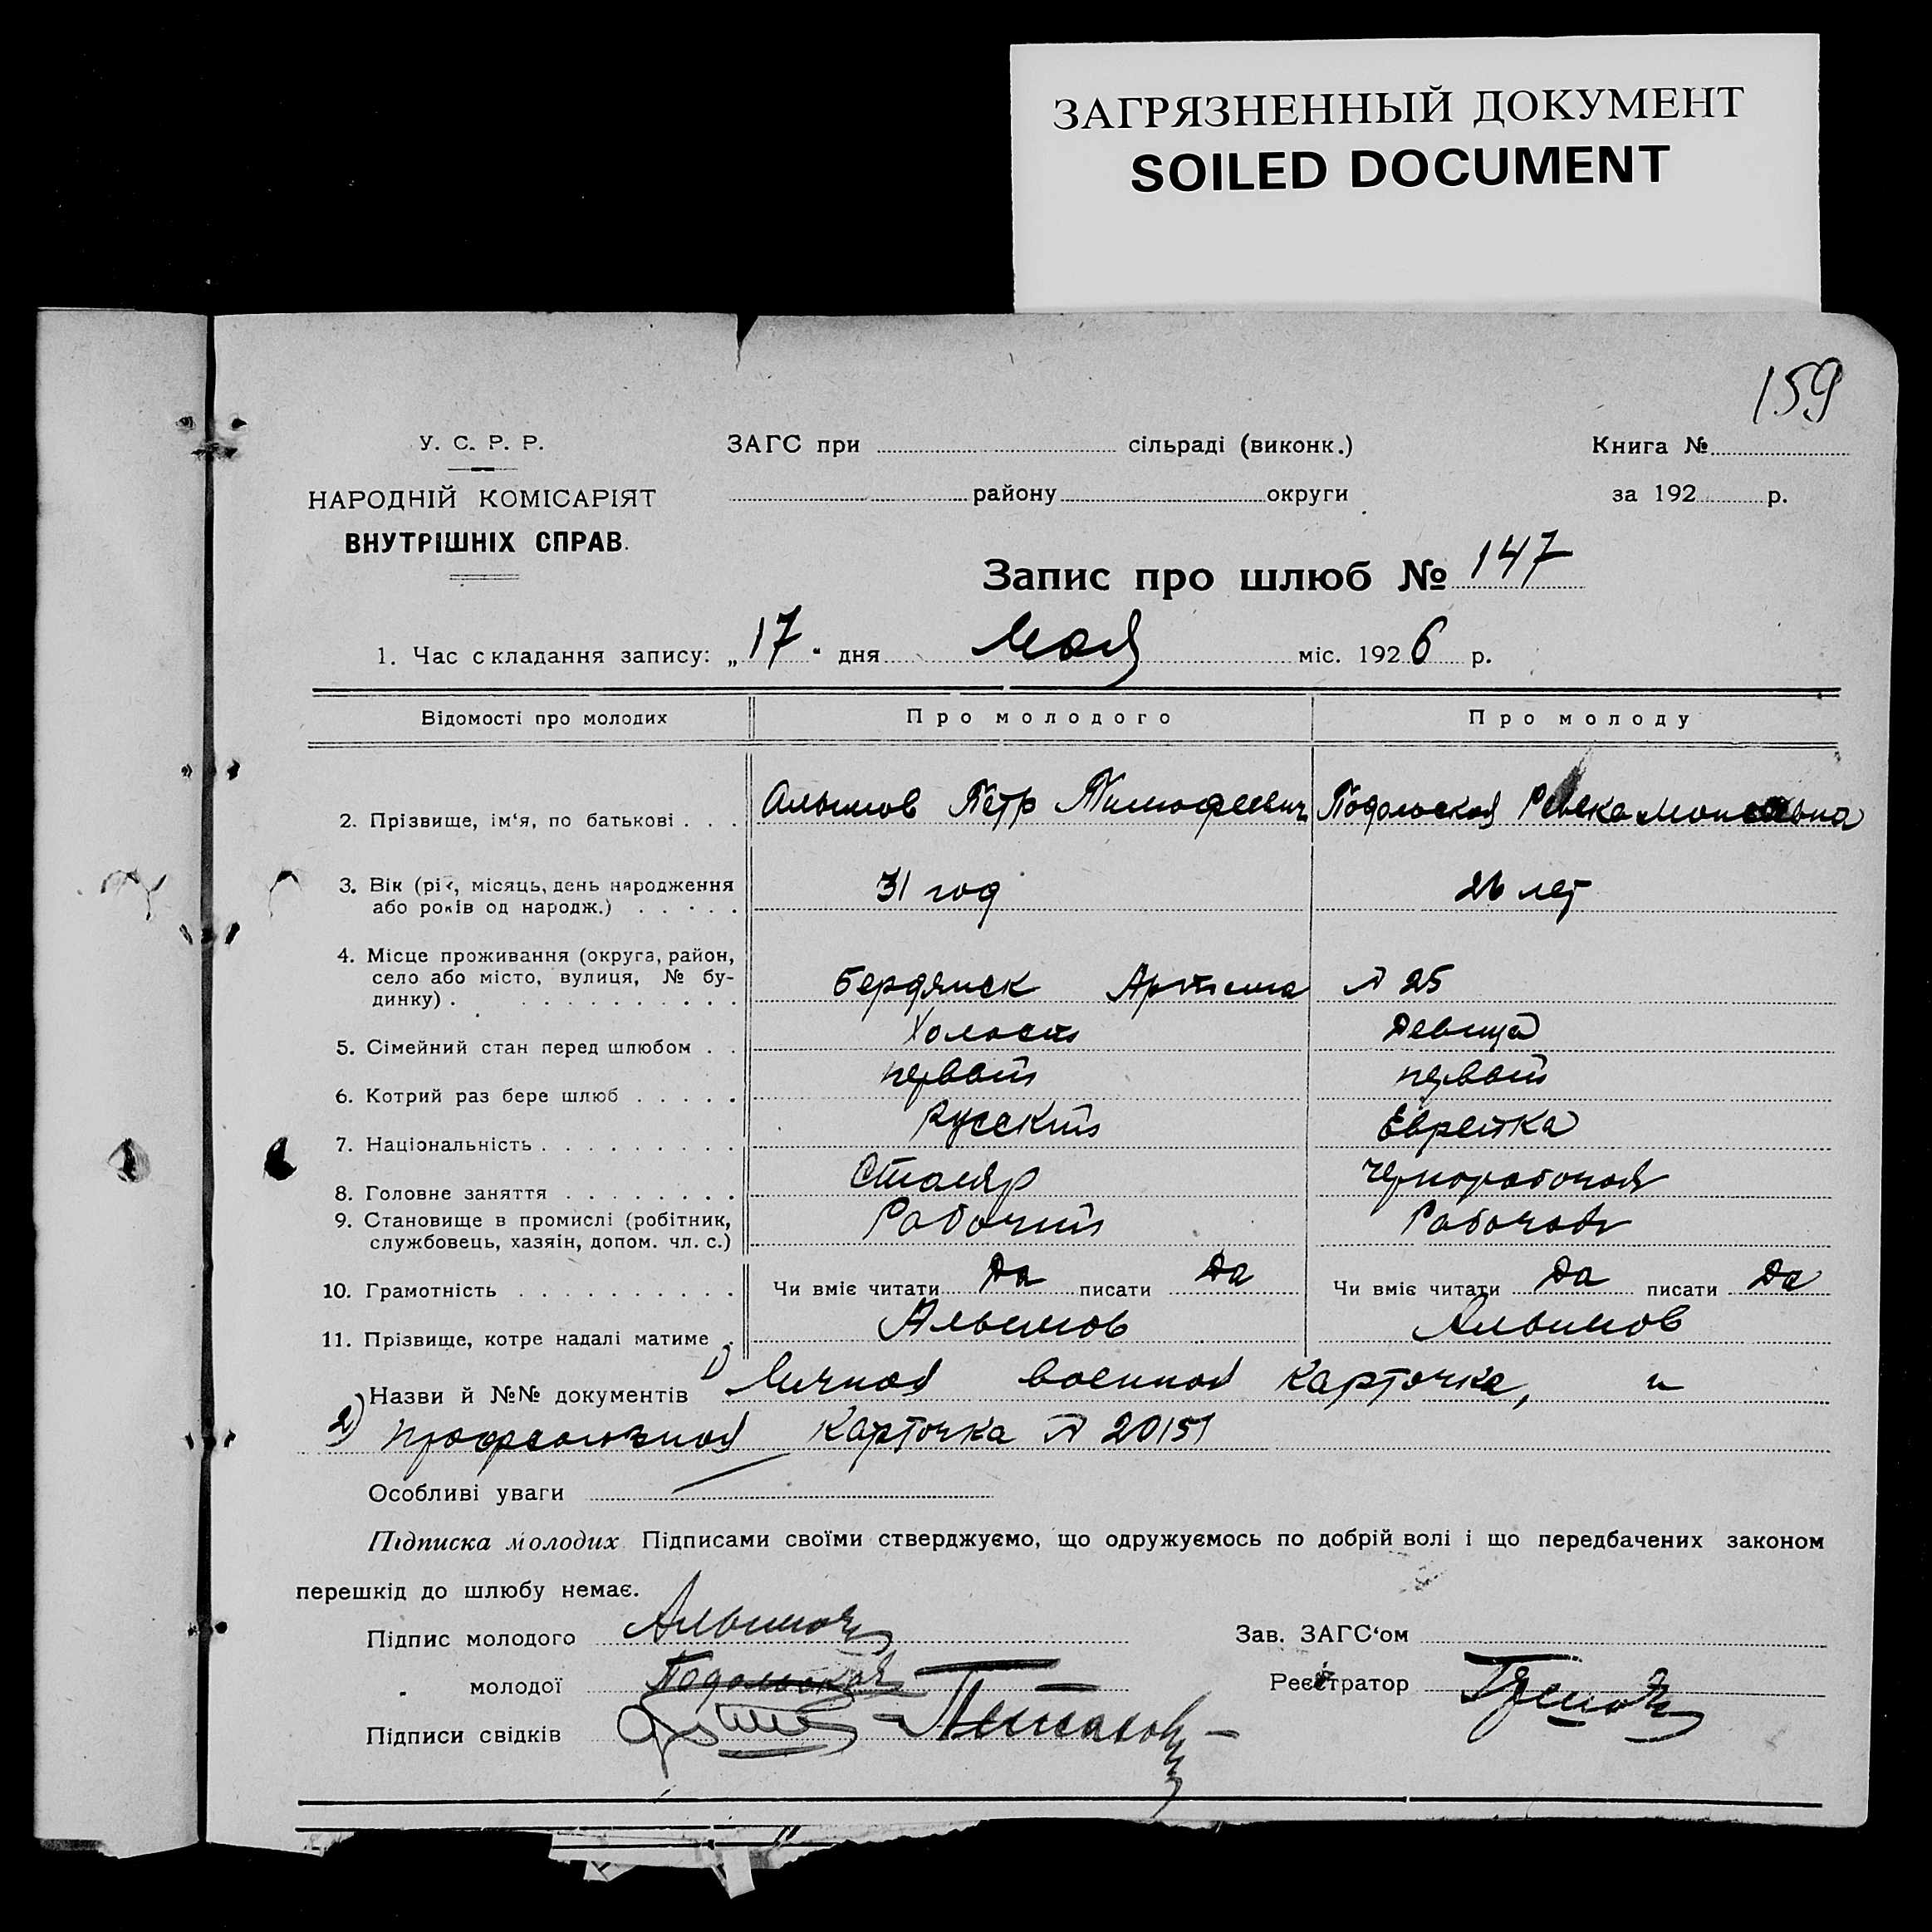 ЗАГРЯЗНЕННЫЙ ДОКУМЕНТ
SOILED DOCUMENT
159
У. С. Р. Р.
НАРОДНІЙ КОМІСАРІЯТ
ВНУТРІШНІХ СПРАВ.
ЗАГС при сільраді (виконк.)
району округи
Книга №
за 192 р.
Запис про шлюб № 147
1. Час складання запису: „17" дня мая міс. 1926 р.
Відомості про молодих Про молодого Про молоду
2. Прізвище, ім'я, по батькові . . . Альимов Петр Тимофеевич Подольская Ревека Моисеевна
3. Вік (рік, місяць, день народження
або років од народж.) . . . . . 31 год 26 лет
4. Місце проживання (округа, район,
село або місто, вулиця, № бу-
динку) . . . . . . . . . . . Бердянск Артема № 25
5. Сімейний стан перед шлюбом . . Холост Девица
6. Котрий раз бере шлюб . . . . . первый первый
7. Національність . . . . . . . . . Русский Еврейка
8. Головне заняття . . . . . . . . Столяр Чернорабочая
9. Становище в промислі (робітник,
службовець, хазяін, допом. чл. с.) Рабочий Рабочая
10. Грамотність . . . . . . . . . . Чи вміє читати Да писати Да Чи вміє читати Да писати Да
11. Прізвище, котре надалі матиме . Альимов Альимов
Назви й №№ документів 1) Личная военная карточка, и
2) профсоюзная карточка № 20151
Особливі уваги
Підписка молодих Підписами своїми стверджуємо, що одружуємось по добрій волі і що передбачених законом
перешкід до шлюбу немає.
Підпис молодого Альимов
Зав. ЗАГС'ом
" молодої Подольская
Реєстратор
Підписи свідків